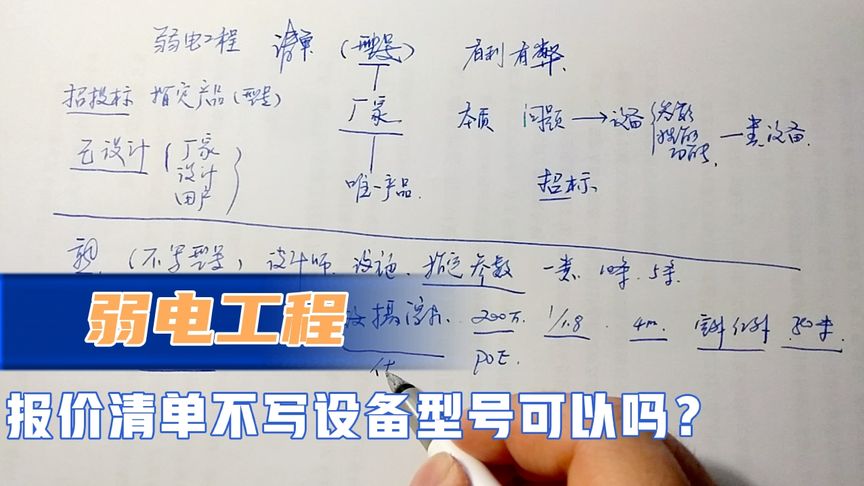 弱电工程 清单 (型号) 有利有弊.
招投标 指定产品(型号) 厂家 本质 问题→设备 参数 性能 功能 一类设备.
已设计 (厂家 设计 用户) 唯一产品. 招标
(不写型号) 设计师 设施. 指定参数 一类 10条. 5条.
弱电工程
摄像机. 200万. 1/1.8. 4m. 室外红外 50米.
POE.
报价清单不写设备型号可以吗?